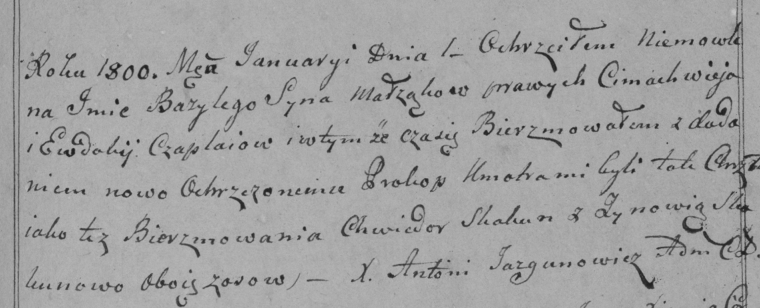 Roku 1800. Msca Januaryi Dnia 1– Ochrzciłem Niemowle
na Imie Bazylego Syna Małżąkow prawych Cimachwieja
i Ewdokij Czaplaiow i wtym że czasię Bierzmowałem z doda
niem nowo Ochrzczonemu Prokop Kmotrami byli tak Chrztu
iako tez Bierzmowania Chwiedor Skakun z Zynowią Ska
kunowo oboię zosow) – X. Antoni Jazgunowicz Adm